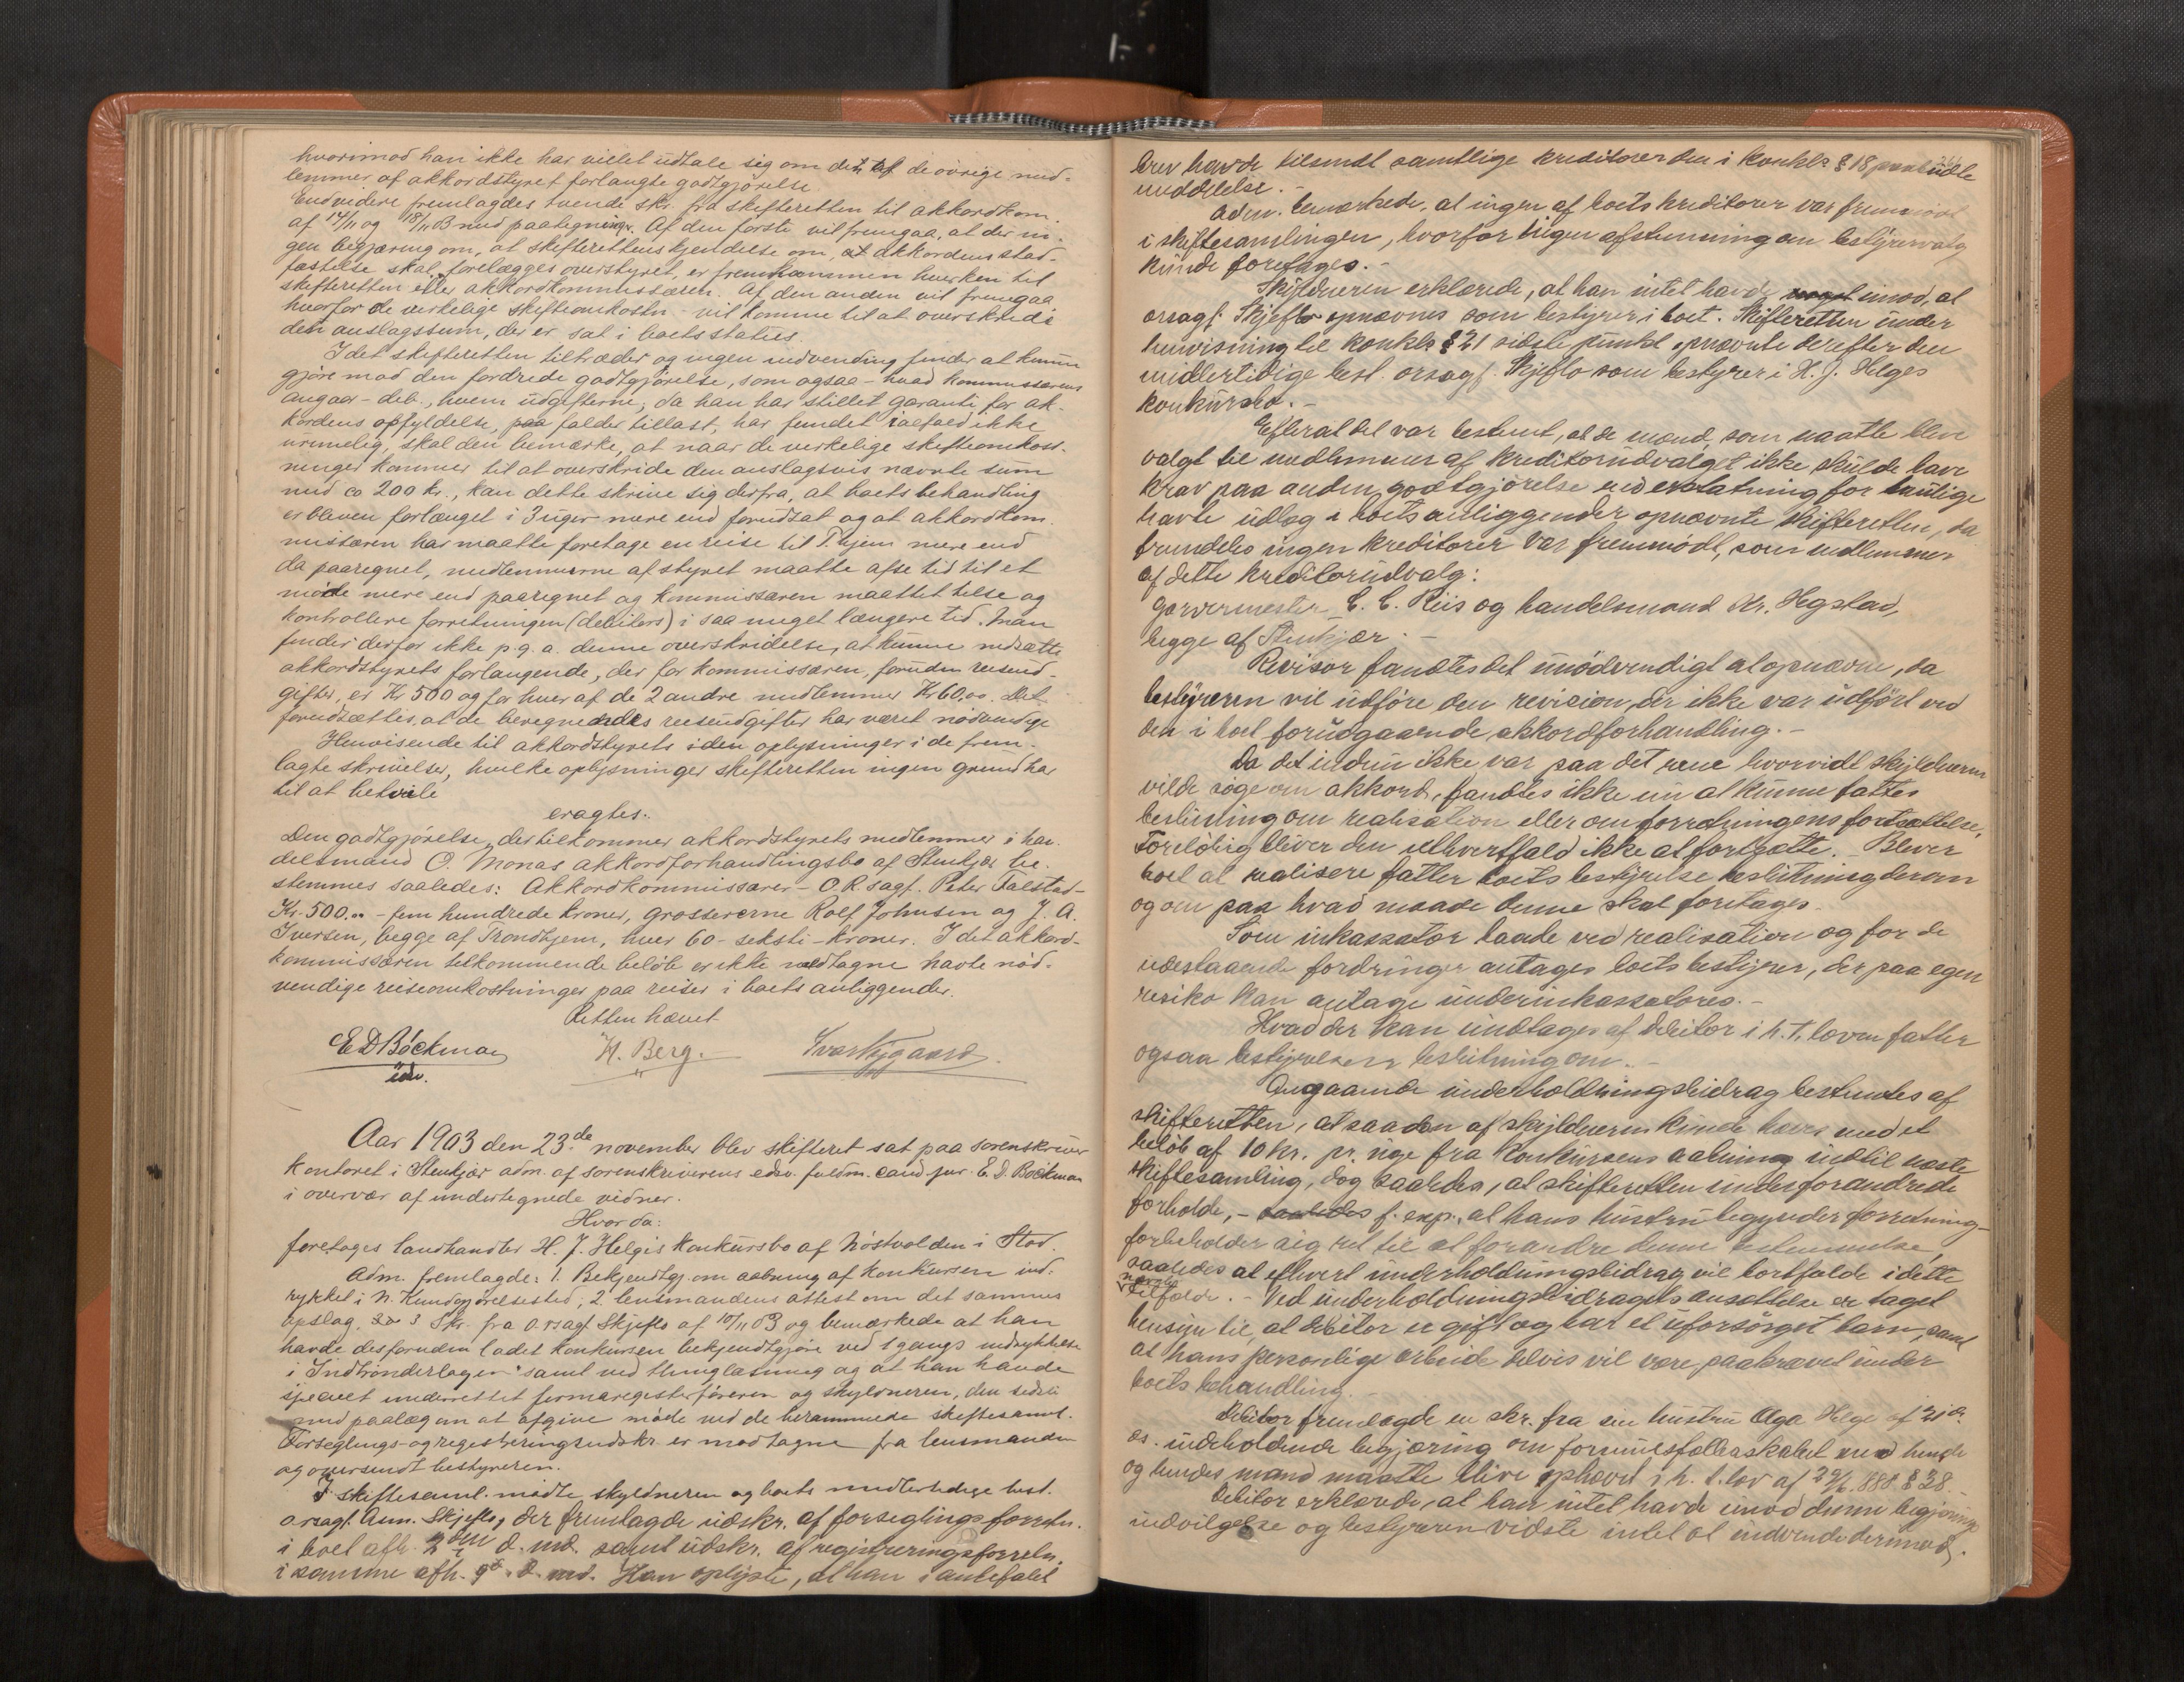 hvorimod han ikke har villet udtale sig om den af de øvrige med-
lemmer af akkordstyret forlangte godtgjørelse.
Endvidere fremlagdes tvende skr. fra skifteretten til akkordkom.
af 14/11 og 18/11 03 med paategninger. Af den første vil fremgaa, at der in-
gen begjæring om, at skifterettens kjendelse om, at akkordens stad-
fæstelse skal forelægges overstyret, er fremkommen hverken til
skifteretten eller akkordkommissæren. Af den anden vil fremgaa
hvorfor de virkelige skifteomkostn. vil komme til at overskride
den anslagssum, der er sat i boets status.
I det skifteretten tiltræder og ingen indvending finder at kunne
gjøre mod den fordrede godtgjørelse, som ogsaa - hvad kommissærens
angaar - deb., hvem udgifterne, da han har stillet garanti for ak-
kordens opfyldelse, paa falder tillast, har fundet ialfald ikke
urimelig, skal den bemærke, at naar de virkelige skifteomkost-
ninger kommer til at overskride den anslagsvis nævnte sum
med ca 200 kr., kan dette skrive sig derfra, at boets behandling
er bleven forlænget i 3 uger mere end forudsat og at akkordkom-
missæren har maatte foretage en reise til T.hjem mere end
da paaregnet, medlemmerne af styret maatte afse tid til et
møde mere end paaregnet og kommissæren maattet tilse og
kontrollere forretningen (debitors) i saa meget længere tid. Man
finder derfor ikke p. g. a. denne overskridelse, at kunne nedsætte
akkordstyrets forlangende, der for kommissæren, foruden reiseud-
gifter, er Kr 500 og for hver af de 2 andre medlemmer Kr 60,00. Det
forudsættes, at de beregnendes reiseudgifter har været nødvendige
Henvisende til akkordstyrets iden oplysninger i de frem-
lagte skrivelser, hvilke oplysninger skifteretten ingen grund har
til at betvile
eragtes:
Den godtgjørelse, der tilkommer akkordstyrets medlemmer i han-
delsmand O. Monas akkordforhandlingsbo af Stenkjær be-
stemmes saaledes: Akkordkommissærer - O.R.sagf. Peter Falstad -
Kr. 500.00 - fem hundrede kroner, grossererne Rolf Johnsen og J. A.
Iversen, begge af Trondhjem, hver 60 - seksti - kroner. I det akkord-
kommissæren tilkommende beløb er ikke medtagne havte nød-
vendige reiseomkostninger paa reiser i boets anliggender.
Retten hævet
E D Bóckman H. Berg. Ivar Nygaard.
edv.
Aar 1903 den 23de november blev skifteret sat paa sorenskriver
kontoret i Stenkjær adm. af sorenskriverens edsv. fuldm. cand jur. E. D. Bóckman
i overvær af undertegnede vidner.
Hvor da:
foretages landhandler H. J. Helges konkursbo af Nøstvolden i Stod.
Adm. fremlagde: 1. Bekjendtgj. om aabning af konkursen ind-
rykket i N. Kundgjørelsestid.; 2. lensmandens attest om det sammes
opslag. 3 Skr. fra o.rsagf Skjeflo af 10/11 03 og bemærkede at han
havde desforuden ladet konkursen bekjendtgjøre ved 1 gangs indrykkelse
i "Indtrønderlagen" samt ved thinglæsning og at han havde
specielt underrettet firmaregisterføreren og skyldneren, den sidste
med paalæg om at afgive møde ved de berammede skiftesaml.
Forseglings- og registreringsudskr. er modtagne fra lensmanden
og oversendt bestyreren.
I skiftesaml. mødte skyldneren og boets midlertidige best.
o.rsagf. Aum. Skjeflo, der fremlagde udskr. af forseglingsforretn.
i boet afh. 2den d. md. samt udskr. af registreringsforretn.
i samme afh. 9de d. md. Han oplyste, at han i anbefalet
brev havde tilsendt samtlige kreditorer den i konkl. § 18 paabudte
meddelelse. -
Adm. bemærkede, at ingen af boets kreditorer var fremmødt
i skiftesamlingen, hvorfor ingen afstemning om bestyrervalg
kunde foretages. -
Skyldneren erklærede, at han intet havde imod, at
orsagf. Skjeflo opnævnes som bestyrer i boet. Skifteretten under
henvisning til konkl. § 21 sidste punkt opnævnte derefter den
midlertidige best. orsagf. Skjeflo som bestyrer i H. J. Helges
konkursbo. -
Efterat det var bestemt, at de mænd, som maatte blive
valgt til medlemmer af kreditorudvalget ikke skulde have
krav paa anden godtgjørelse end erstatning for mulige
havte udlæg i boets anliggender opnævnte skifteretten, da
fremdeles ingen kreditorer var fremmødt, som medlemmer
af dette kreditorudvalg:
Garvermester C. C. Riis og handelsmand Kr. Hegstad,
begge af Stenkjær. -
Revisor fandtes det unødvendigt at opnævne, da
bestyreren vil udføre den revision, der ikke var udført ved
den i boet forudgaaende akkordforhandling. -
Da det endnu ikke var paa det rene hvorvidt skyldneren
vilde søge om akkord, fandtes ikke nu at kunne fattes
beslutning om realisation eller om forretningens fortsættelse,
Foreløbig bliver den ethvertfald ikke at fortsætte. - Bliver
boet at realisere fatter boets bestyrelse beslutning derom
og om paa hvad maade denne skal foretages.
Som inkassator baade ved realisation og for de
udestaaende fordringer antages boets bestyrer, der paa egen
risiko kan antage underinkassatores. -
Hvad der kan undtages af debitor i h. t. loven fatter
ogsaa bestyrelsen beslutning om. -
Angaaende underholdningsbidrag bestemtes af
skifteretten, at saadan af skyldneren kunde hæves med et
beløb af 10 kr. pr. uge fra konkursens aabning indtil næste
skiftesamling, dog saaledes, at skifteretten under forandrede
forholde, - saaledes f. exp., at hans hustru begynder forretning -
forbeholder sig ret til at forandre denne bestemmelse,
saaledes at ethvert underholdningsbidrag vil bortfalde i dette
nævnte
tilfælde. - Ved underholdningsbidragets ansættelse er taget
hensyn til, at debitor er gift og har et uforsørget barn, samt
at hans personlige arbeide delvis vil være paakrævet under
boets behandling. -
Debitor fremlagde en skr. fra sin hustru Olga Helge af 21 ds.
ds. indeholdende begjæring om formuesfællesskabet med hende
og hendes mand maatte blive ophævet i h. t. lov af 29/6 1888 § 38. -
Debitor erklærede, at han intet havde imod denne begjærings
indvilgelse og bestyreren vidste intet at indvende derimod.